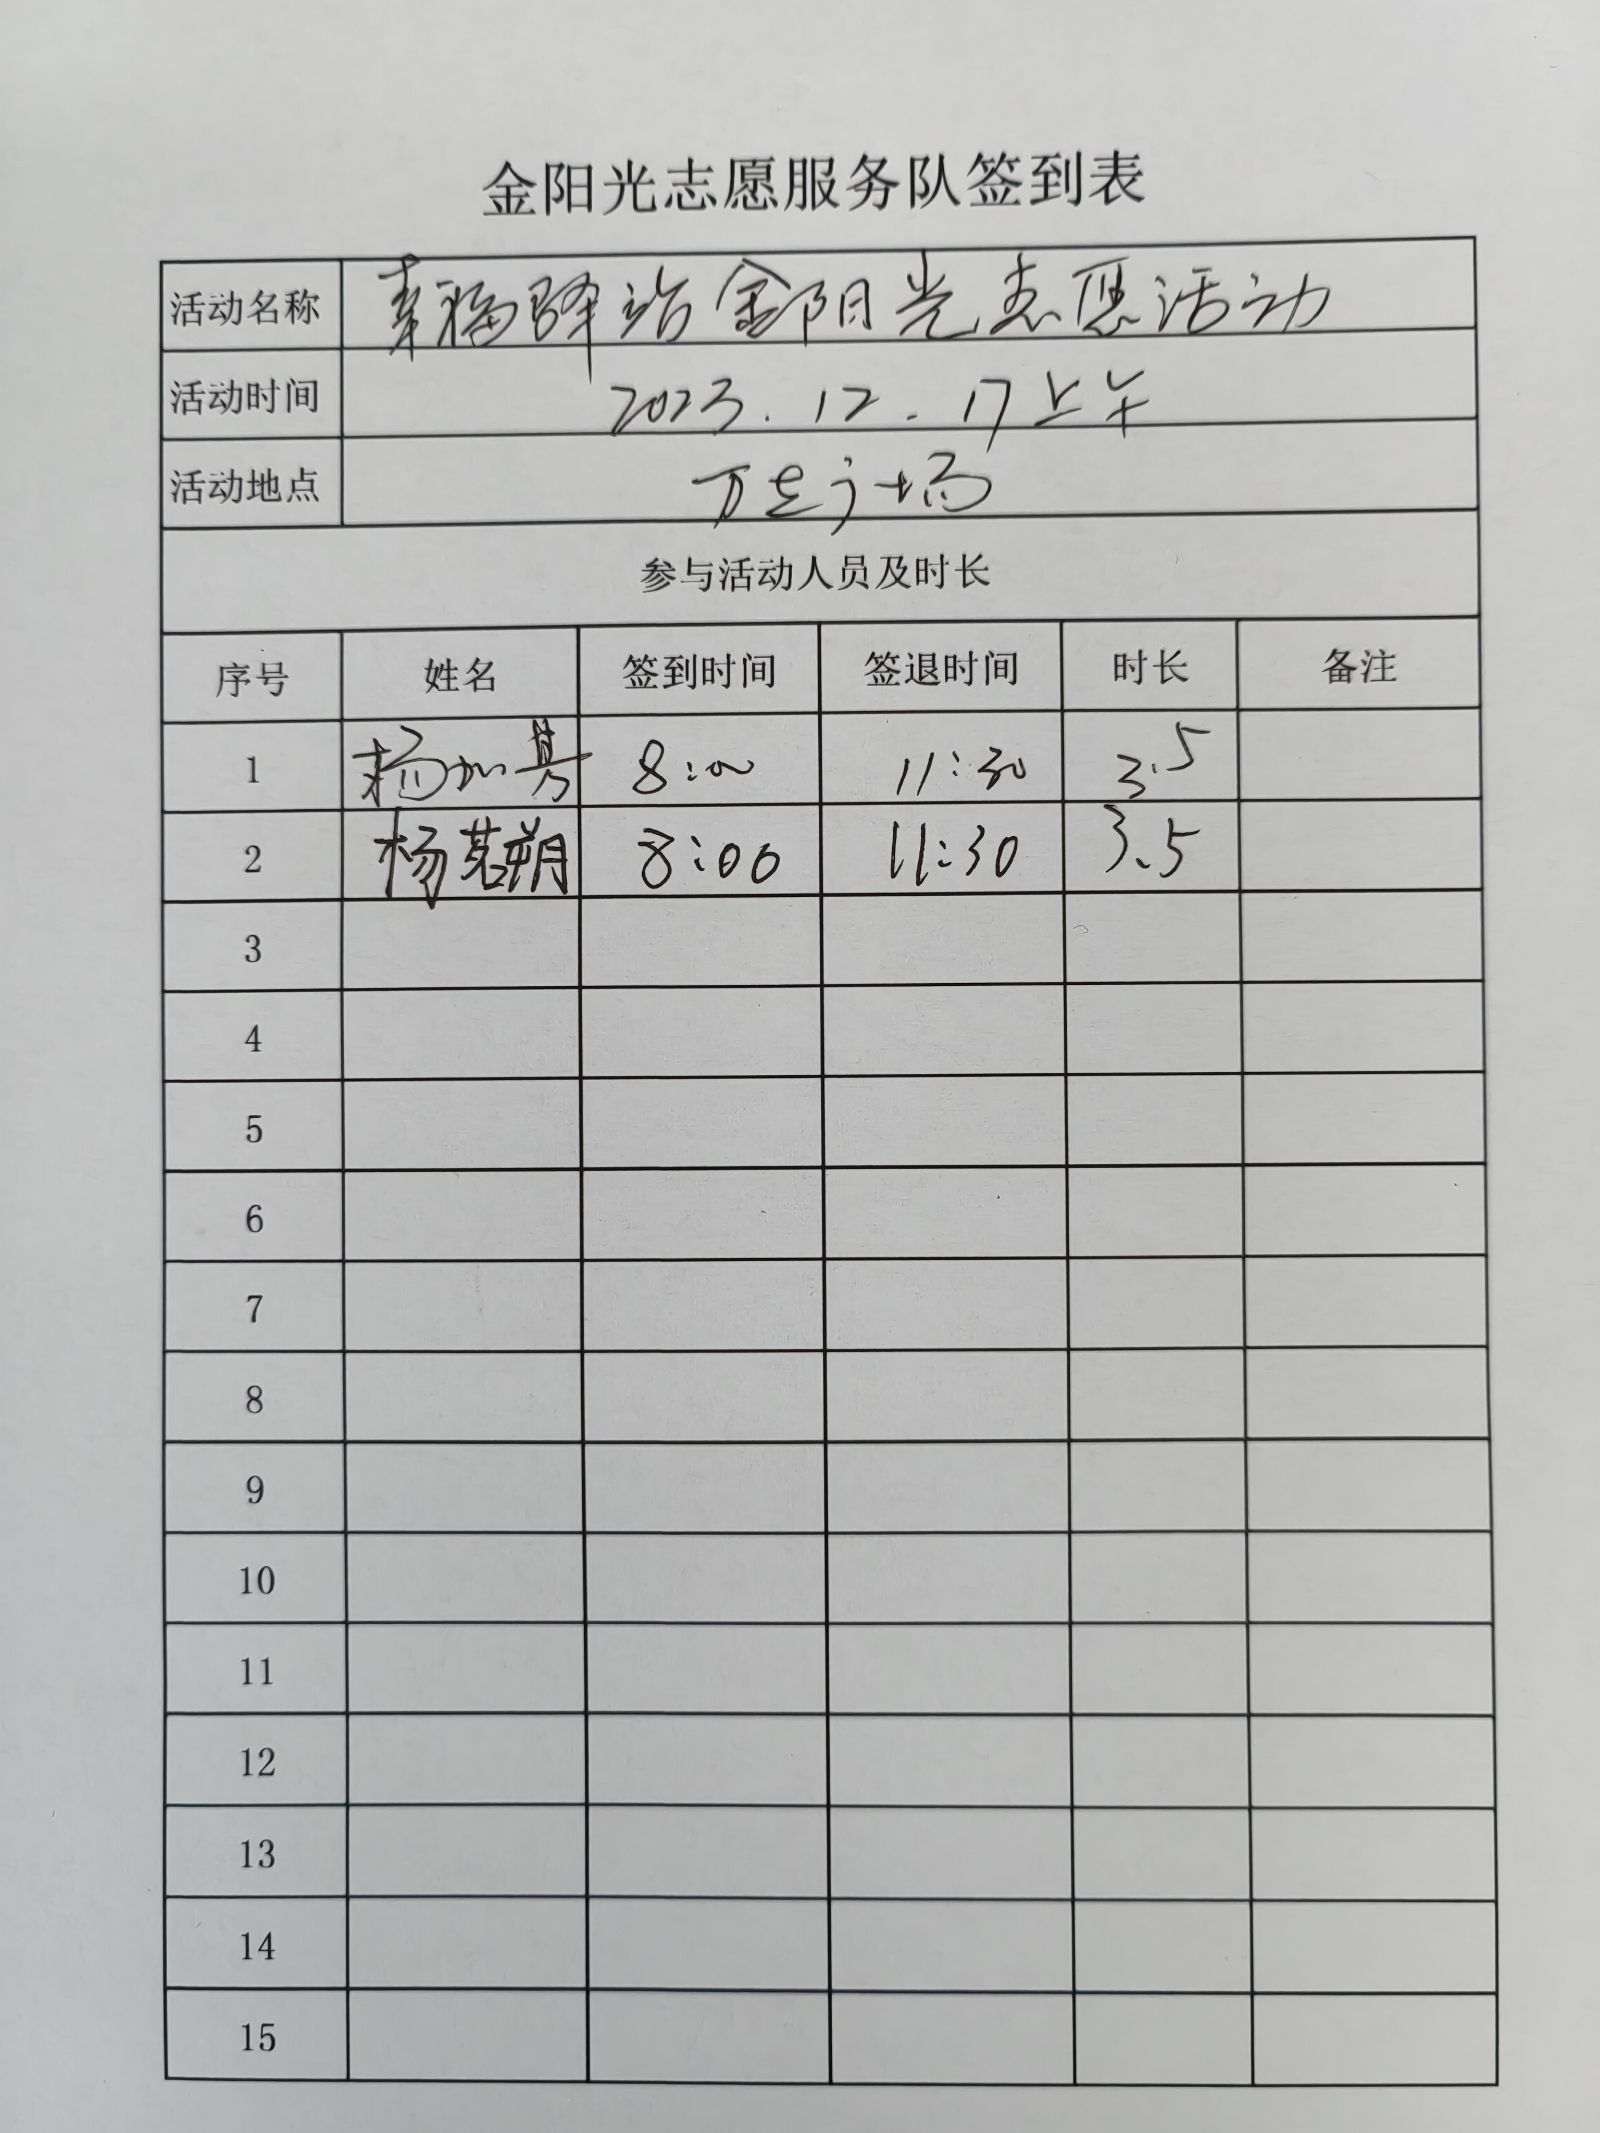 金阳光志愿服务队签到表
活动名称 幸福驿站金阳光志愿活动
活动时间 2023.12.17上午
活动地点 万达广场
参与活动人员及时长
序号 姓名 签到时间 签退时间 时长 备注
1 杨 8:00 11:30 3.5
2 杨茗朔 8:00 11:30 3.5
3
4
5
6
7
8
9
10
11
12
13
14
15